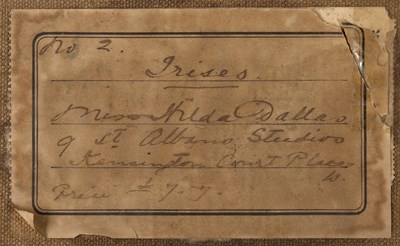 No 2.
Irises.
Miss Hilda Dallas
9 St Albans Studios
Kensington Court Place
W.
Price £7.7.